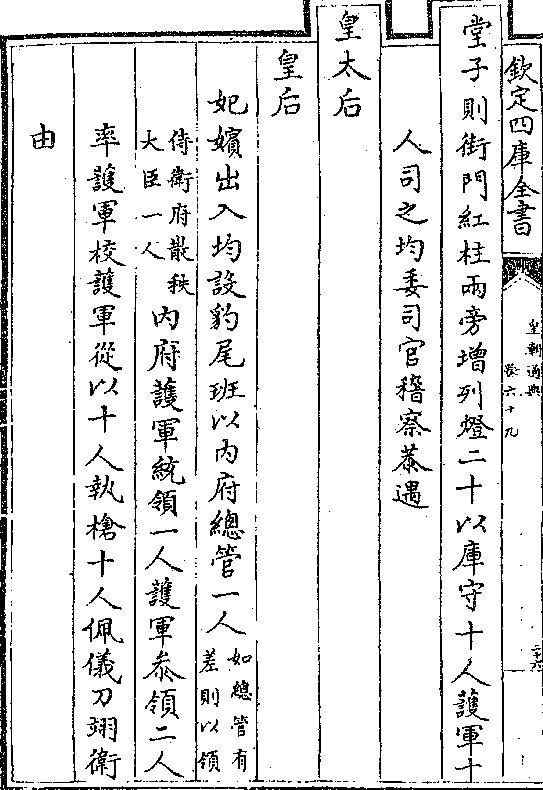 欽定四庫全書
皇朝通典
卷六十九
二十六
堂子則街門紅柱兩旁增列燈二十以庫守十人護軍十
人司之均委司官稽察恭遇
皇太后
皇后
妃嬪出入均設豹尾班以內府總管一人如總管有差則以領
侍衛府散秩大臣一人內府護軍統領一人護軍叅領二人
率護軍校護軍從以十人執槍十人佩儀刀翊衛
由